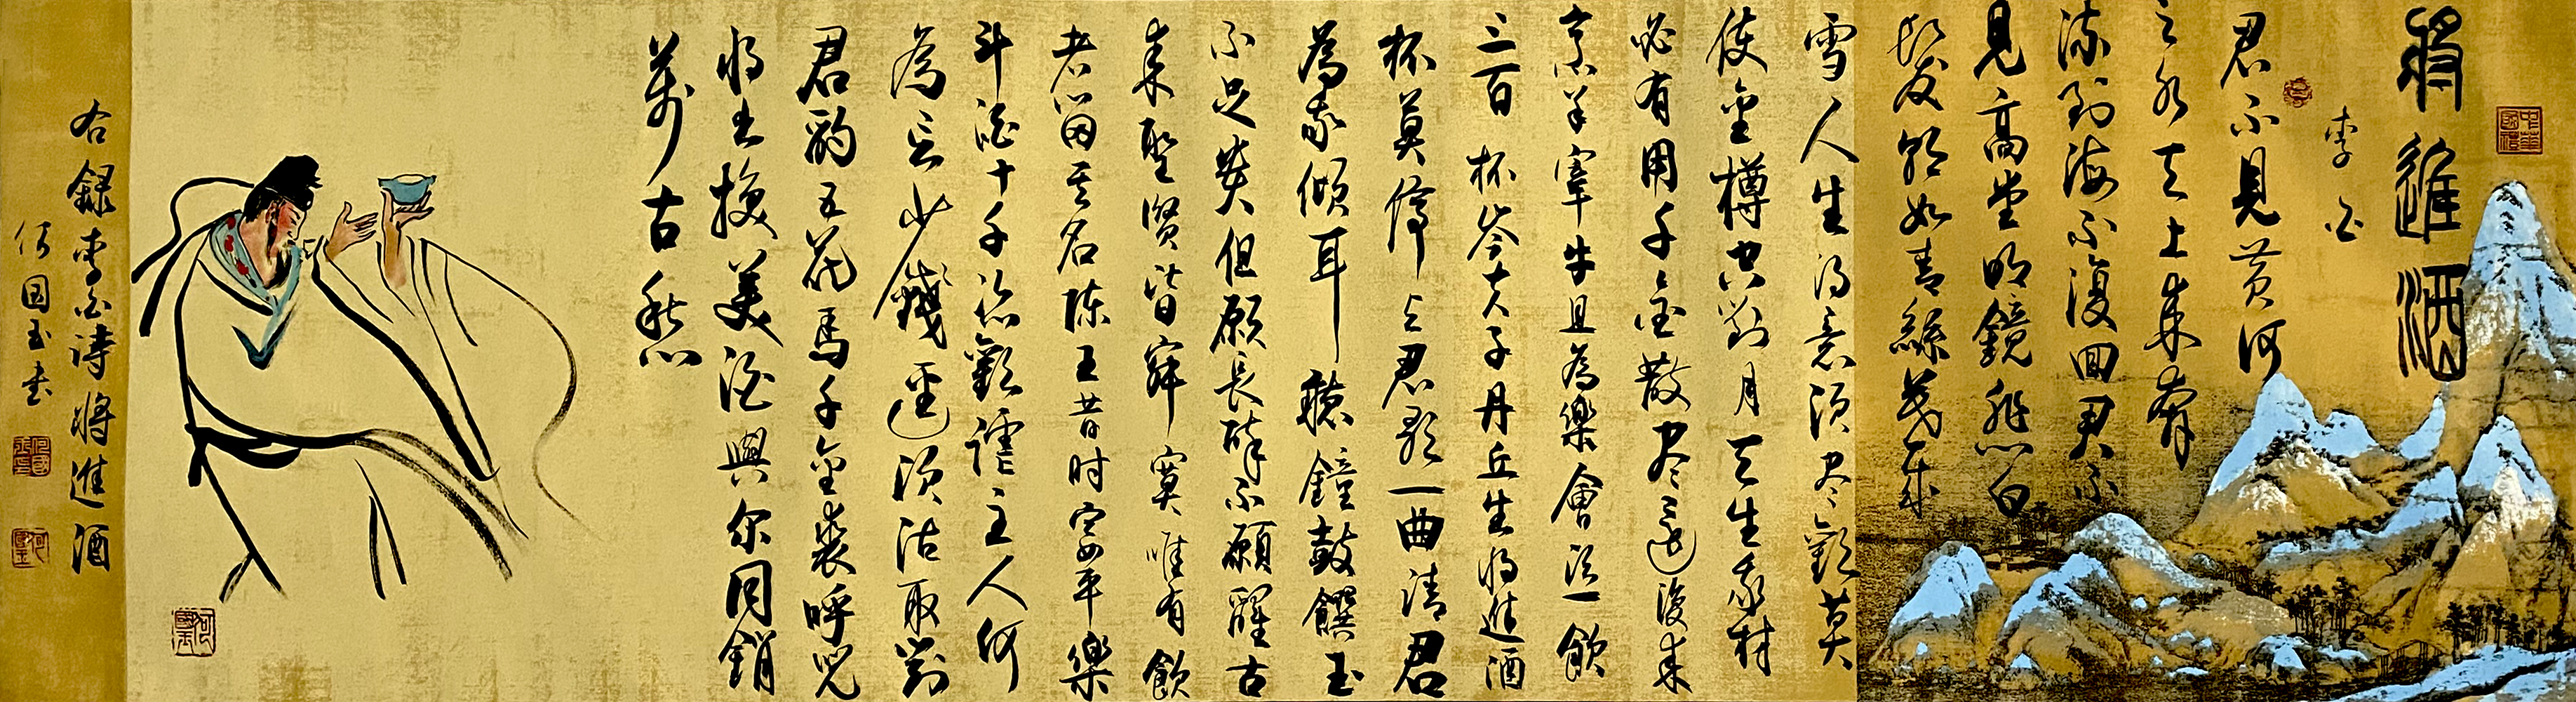 將進酒
李白
君不見黃河
之水天上來奔
流到海不復回君不
見高堂明鏡悲白
髮朝如青絲暮成
雪人生得意須尽歡莫
使金樽空對月天生我材
必有用千金散尽還復來
烹羊宰牛且為樂會須一飲
三百杯岑夫子丹丘生將進酒
杯莫停与君歌一曲請君
為我傾耳聽鐘鼓饌玉
不足貴但願長醉不願醒古
來聖賢皆寂寞唯有飲
者留其名陳王昔时宴平樂
斗酒十千恣歡謔主人何
為言少錢逕須沽取對
君酌五花馬千金裘呼兒
將出換美酒與尔同銷
萬古愁
右録李白詩將進酒
何國玉書
中華國禮
何國玉